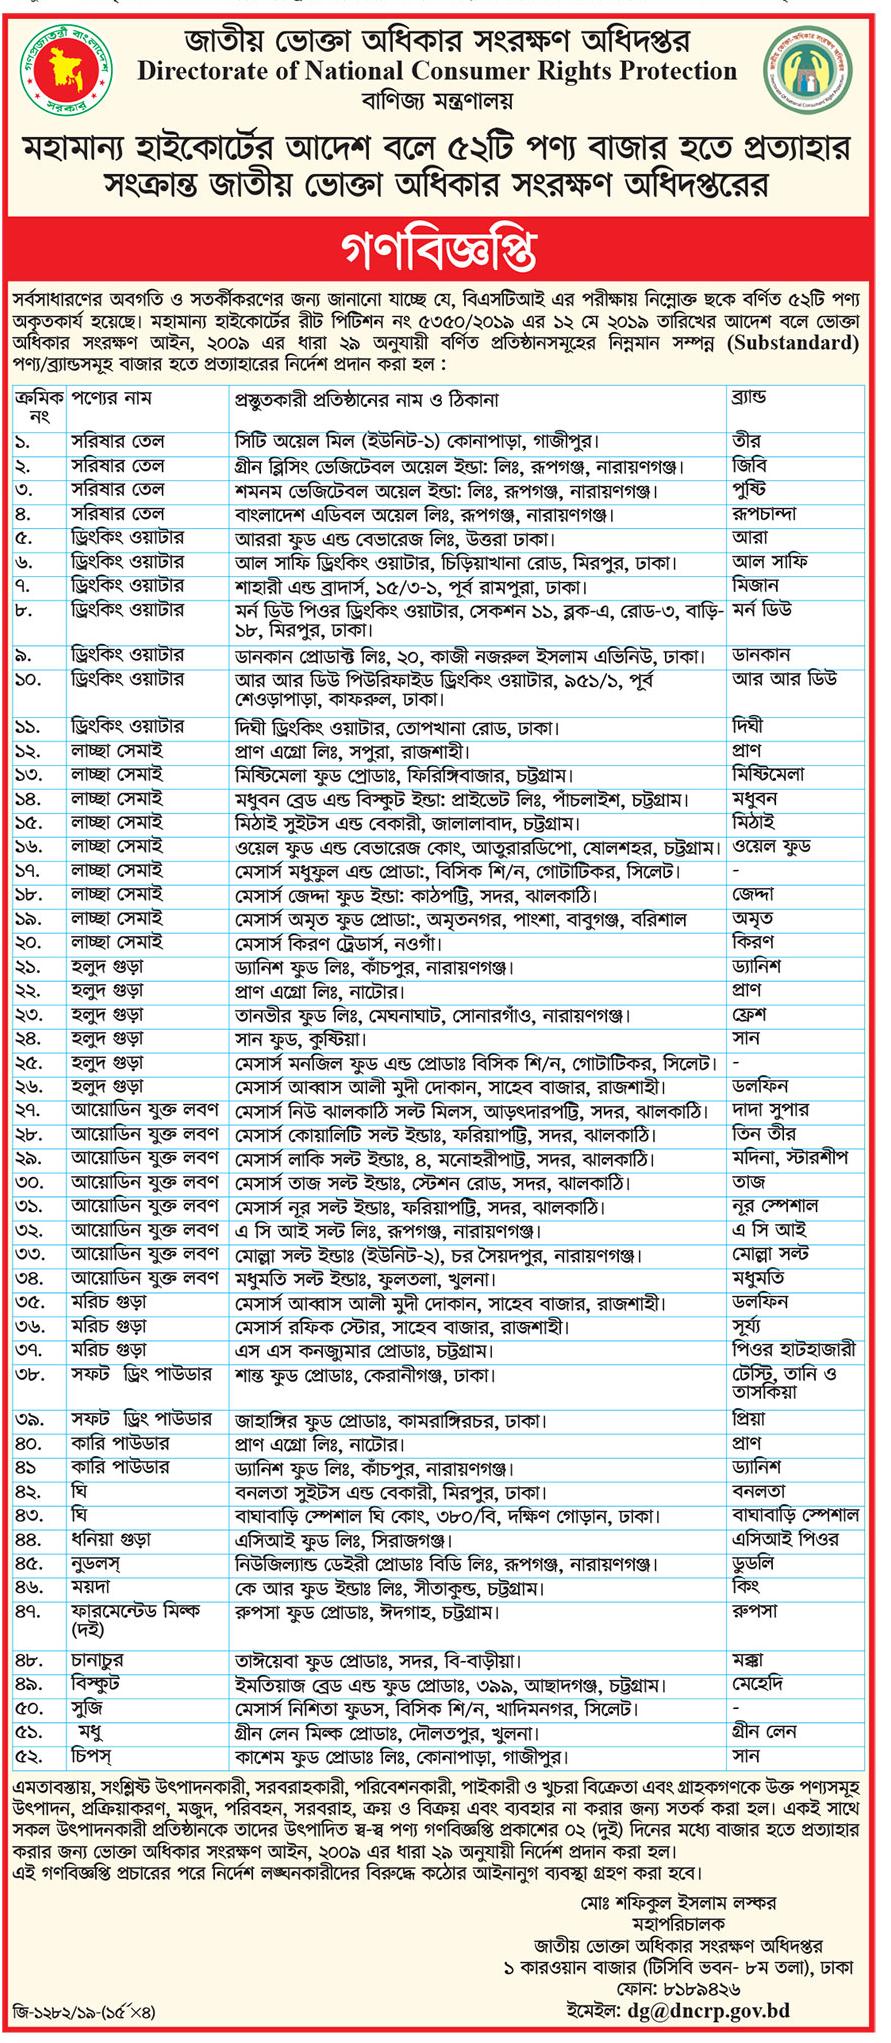 জাতীয় ভোক্তা অধিকার সংরক্ষণ অধিদপ্তর
Directorate of National Consumer Rights Protection
বাণিজ্য মন্ত্রণালয়
মহামান্য হাইকোর্টের আদেশ বলে ৫২টি পণ্য বাজার হতে প্রত্যাহার
সংক্রান্ত জাতীয় ভোক্তা অধিকার সংরক্ষণ অধিদপ্তরের
গণবিজ্ঞপ্তি
সর্বসাধারণের অবগতি ও সতর্কীকরণের জন্য জানানো যাচ্ছে যে, বিএসটিআই এর পরীক্ষায় নিম্নোক্ত ছকে বর্ণিত ৫২টি পণ্য
অকৃতকার্য হয়েছে। মহামান্য হাইকোর্টের রীট পিটিশন নং ৫৩৫০/২০১৯ এর ১২ মে ২০১৯ তারিখের আদেশ বলে ভোক্তা
অধিকার সংরক্ষণ আইন, ২০০৯ এর ধারা ২৯ অনুযায়ী বর্ণিত প্রতিষ্ঠানসমূহের নিম্নমান সম্পন্ন (Substandard)
পণ্য/ব্র্যান্ডসমূহ বাজার হতে প্রত্যাহারের নির্দেশ প্রদান করা হল :
ক্রমিক নং পণ্যের নাম প্রস্তুতকারী প্রতিষ্ঠানের নাম ও ঠিকানা ব্র্যান্ড
১. সরিষার তেল সিটি অয়েল মিল (ইউনিট-১) কোনাপাড়া, গাজীপুর। তীর
২. সরিষার তেল গ্রীন ব্লিসিং ভেজিটেবল অয়েল ইন্ডা: লিঃ, রূপগঞ্জ, নারায়ণগঞ্জ। জিবি
৩. সরিষার তেল শমনম ভেজিটেবল অয়েল ইন্ডা: লিঃ, রূপগঞ্জ, নারায়ণগঞ্জ। পুষ্টি
৪. সরিষার তেল বাংলাদেশ এডিবল অয়েল লিঃ, রূপগঞ্জ, নারায়ণগঞ্জ। রূপচান্দা
৫. ড্রিংকিং ওয়াটার আররা ফুড এন্ড বেভারেজ লিঃ, উত্তরা ঢাকা। আরা
৬. ড্রিংকিং ওয়াটার আল সাফি ড্রিংকিং ওয়াটার, চিড়িয়াখানা রোড, মিরপুর, ঢাকা। আল সাফি
৭. ড্রিংকিং ওয়াটার শাহারী এন্ড ব্রাদার্স, ১৫/৩-১, পূর্ব রামপুরা, ঢাকা। মিজান
৮. ড্রিংকিং ওয়াটার মর্ন ডিউ পিওর ড্রিংকিং ওয়াটার, সেকশন ১১, ব্লক-এ, রোড-৩, বাড়ি- মর্ন ডিউ
১৮, মিরপুর, ঢাকা।
৯. ড্রিংকিং ওয়াটার ডানকান প্রোডাক্ট লিঃ, ২০, কাজী নজরুল ইসলাম এভিনিউ, ঢাকা। ডানকান
১০. ড্রিংকিং ওয়াটার আর আর ডিউ পিউরিফাইড ড্রিংকিং ওয়াটার, ৯৫১/১, পূর্ব আর আর ডিউ
শেওড়াপাড়া, কাফরুল, ঢাকা।
১১. ড্রিংকিং ওয়াটার দিঘী ড্রিংকিং ওয়াটার, তোপখানা রোড, ঢাকা। দিঘী
১২. লাচ্ছা সেমাই প্রাণ এগ্রো লিঃ, সপুরা, রাজশাহী। প্রাণ
১৩. লাচ্ছা সেমাই মিষ্টিমেলা ফুড প্রোডাঃ, ফিরিঙ্গিবাজার, চট্টগ্রাম। মিষ্টিমেলা
১৪. লাচ্ছা সেমাই মধুবন ব্রেড এন্ড বিস্কুট ইন্ডা: প্রাইভেট লিঃ, পাঁচলাইশ, চট্টগ্রাম। মধুবন
১৫. লাচ্ছা সেমাই মিঠাই সুইটস এন্ড বেকারী, জালালাবাদ, চট্টগ্রাম। মিঠাই
১৬. লাচ্ছা সেমাই ওয়েল ফুড এন্ড বেভারেজ কোং, আতুরারডিপো, ষোলশহর, চট্টগ্রাম। ওয়েল ফুড
১৭. লাচ্ছা সেমাই মেসার্স মধুফুল এন্ড প্রোডা:, বিসিক শি/ন, গোটাটিকর, সিলেট। -
১৮. লাচ্ছা সেমাই মেসার্স জেদ্দা ফুড ইন্ডা: কাঠপট্টি, সদর, ঝালকাঠি। জেদ্দা
১৯. লাচ্ছা সেমাই মেসার্স অমৃত ফুড প্রোডা:, অমৃতনগর, পাংশা, বাবুগঞ্জ, বরিশাল অমৃত
২০. লাচ্ছা সেমাই মেসার্স কিরণ ট্রেডার্স, নওগাঁ। কিরণ
২১. হলুদ গুড়া ড্যানিশ ফুড লিঃ, কাঁচপুর, নারায়ণগঞ্জ। ড্যানিশ
২২. হলুদ গুড়া প্রাণ এগ্রো লিঃ, নাটোর। প্রাণ
২৩. হলুদ গুড়া তানভীর ফুড লিঃ, মেঘনাঘাট, সোনারগাঁও, নারায়ণগঞ্জ। ফ্রেশ
২৪. হলুদ গুড়া সান ফুড, কুষ্টিয়া। সান
২৫. হলুদ গুড়া মেসার্স মনজিল ফুড এন্ড প্রোডাঃ বিসিক শি/ন, গোটাটিকর, সিলেট। -
২৬. হলুদ গুড়া মেসার্স আব্বাস আলী মুদী দোকান, সাহেব বাজার, রাজশাহী। ডলফিন
২৭. আয়োডিন যুক্ত লবণ মেসার্স নিউ ঝালকাঠি সল্ট মিলস, আড়ৎদারপট্টি, সদর, ঝালকাঠি। দাদা সুপার
২৮. আয়োডিন যুক্ত লবণ মেসার্স কোয়ালিটি সল্ট ইন্ডাঃ, ফরিয়াপট্টি, সদর, ঝালকাঠি। তিন তীর
২৯. আয়োডিন যুক্ত লবণ মেসার্স লাকি সল্ট ইন্ডাঃ, ৪, মনোহরীপাট্ট, সদর, ঝালকাঠি। মদিনা, স্টারশীপ
৩০. আয়োডিন যুক্ত লবণ মেসার্স তাজ সল্ট ইন্ডাঃ, স্টেশন রোড, সদর, ঝালকাঠি। তাজ
৩১. আয়োডিন যুক্ত লবণ মেসার্স নূর সল্ট ইন্ডাঃ, ফরিয়াপট্টি, সদর, ঝালকাঠি। নূর স্পেশাল
৩২. আয়োডিন যুক্ত লবণ এ সি আই সল্ট লিঃ, রূপগঞ্জ, নারায়ণগঞ্জ। এ সি আই
৩৩. আয়োডিন যুক্ত লবণ মোল্লা সল্ট ইন্ডাঃ (ইউনিট-২), চর সৈয়দপুর, নারায়ণগঞ্জ। মোল্লা সল্ট
৩৪. আয়োডিন যুক্ত লবণ মধুমতি সল্ট ইন্ডাঃ, ফুলতলা, খুলনা। মধুমতি
৩৫. মরিচ গুড়া মেসার্স আব্বাস আলী মুদী দোকান, সাহেব বাজার, রাজশাহী। ডলফিন
৩৬. মরিচ গুড়া মেসার্স রফিক স্টোর, সাহেব বাজার, রাজশাহী। সূর্য্য
৩৭. মরিচ গুড়া এস এস কনজ্যুমার প্রোডাঃ, চট্টগ্রাম। পিওর হাটহাজারী
৩৮. সফট ড্রিং পাউডার শান্ত ফুড প্রোডাঃ, কেরানীগঞ্জ, ঢাকা। টেস্টি, তানি ও
তাসকিয়া
৩৯. সফট ড্রিং পাউডার জাহাঙ্গির ফুড প্রোডাঃ, কামরাঙ্গিরচর, ঢাকা। প্রিয়া
৪০. কারি পাউডার প্রাণ এগ্রো লিঃ, নাটোর। প্রাণ
৪১ কারি পাউডার ড্যানিশ ফুড লিঃ, কাঁচপুর, নারায়ণগঞ্জ। ড্যানিশ
৪২. ঘি বনলতা সুইটস এন্ড বেকারী, মিরপুর, ঢাকা। বনলতা
৪৩. ঘি বাঘাবাড়ি স্পেশাল ঘি কোং, ৩৮০/বি, দক্ষিণ গোড়ান, ঢাকা। বাঘাবাড়ি স্পেশাল
৪৪. ধনিয়া গুড়া এসিআই ফুড লিঃ, সিরাজগঞ্জ। এসিআই পিওর
৪৫. নুডলস্ নিউজিল্যান্ড ডেইরী প্রোডাঃ বিডি লিঃ, রূপগঞ্জ, নারায়ণগঞ্জ। ডুডলি
৪৬. ময়দা কে আর ফুড ইন্ডাঃ লিঃ, সীতাকুন্ড, চট্টগ্রাম। কিং
৪৭. ফারমেন্টেড মিল্ক রুপসা ফুড প্রোডাঃ, ঈদগাহ, চট্টগ্রাম। রুপসা
(দই)
৪৮. চানাচুর তাঈয়েবা ফুড প্রোডাঃ, সদর, বি-বাড়ীয়া। মক্কা
৪৯. বিস্কুট ইমতিয়াজ ব্রেড এন্ড ফুড প্রোডাঃ, ৩৯৯, আছাদগঞ্জ, চট্টগ্রাম। মেহেদি
৫০. সুজি মেসার্স নিশিতা ফুডস, বিসিক শি/ন, খাদিমনগর, সিলেট। -
৫১. মধু গ্রীন লেন মিল্ক প্রোডাঃ, দৌলতপুর, খুলনা। গ্রীন লেন
৫২. চিপস্ কাশেম ফুড প্রোডাঃ লিঃ, কোনাপাড়া, গাজীপুর। সান
এমতাবস্তায়, সংশ্লিস্ট উৎপাদনকারী, সরবরাহকারী, পরিবেশনকারী, পাইকারী ও খুচরা বিক্রেতা এবং গ্রাহকগণকে উক্ত পণ্যসমূহ
উৎপাদন, প্রক্রিয়াকরণ, মজুদ, পরিবহন, সরবরাহ, ক্রয় ও বিক্রয় এবং ব্যবহার না করার জন্য সতর্ক করা হল। একই সাথে
সকল উৎপাদনকারী প্রতিষ্ঠানকে তাদের উৎপাদিত স্ব-স্ব পণ্য গণবিজ্ঞপ্তি প্রকাশের ০২ (দুই) দিনের মধ্যে বাজার হতে প্রত্যাহার
করার জন্য ভোক্তা অধিকার সংরক্ষণ আইন, ২০০৯ এর ধারা ২৯ অনুযায়ী নির্দেশ প্রদান করা হল।
এই গণবিজ্ঞপ্তি প্রচারের পরে নির্দেশ লঙ্ঘনকারীদের বিরুদ্ধে কঠোর আইনানুগ ব্যবস্থা গ্রহণ করা হবে।
মোঃ শফিকুল ইসলাম লস্কর
মহাপরিচালক
জাতীয় ভোক্তা অধিকার সংরক্ষণ অধিদপ্তর
১ কারওয়ান বাজার (টিসিবি ভবন- ৮ম তলা), ঢাকা
ফোন: ৮১৮৯৪২৬
জি-১২৮২/১৯-(১৫˝×৪) ইমেইল: dg@dncrp.gov.bd